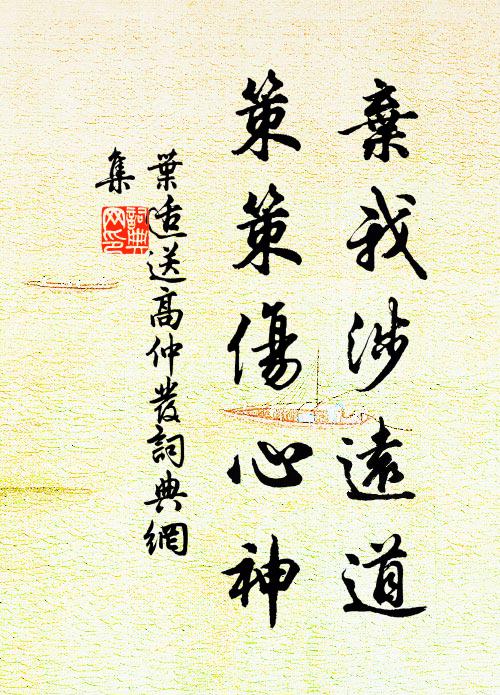 棄我涉遠道
策策傷心神
葉适送高仲發詞典網
集
詞典网印